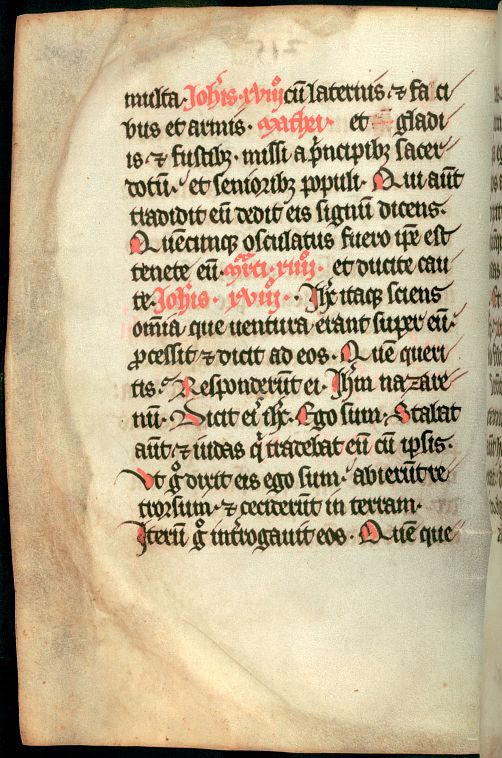 multa. Joh̄is. xviijͦ cū laternis ⁊ faci
bus et armis. Mathei. et gladi
is ⁊ fustibꝫ. missi a p̄ncipibꝫ sacer
dotū. et senioribꝫ populi. Qui aūt
tradidit eū dedit eis signū dicens.
Quēcunqꝫ osculatus fuero ip̄e est
tenete eū. M̄rci. xiiijͦ. et ducite cau
te. Joh̄is. xviijͦ. Ih̄c itaqꝫ sciens
om̄ia que uentura erant super eū.
ꝓcessit ⁊ dicit ad eos. Quē queri
tis. Responderūt ei. Ih̄m nazare
nū. Dicit ei ih̄c. Ego sum. Stabat
aūt ⁊ iudas qͥ tradebat eū cū ipsis.
Vt gͦ dixit eis ego sum. abierūt re
trorsum. ⁊ ceciderūt in terram.
Iterū gͦ int̄rogauit eos. Quē que